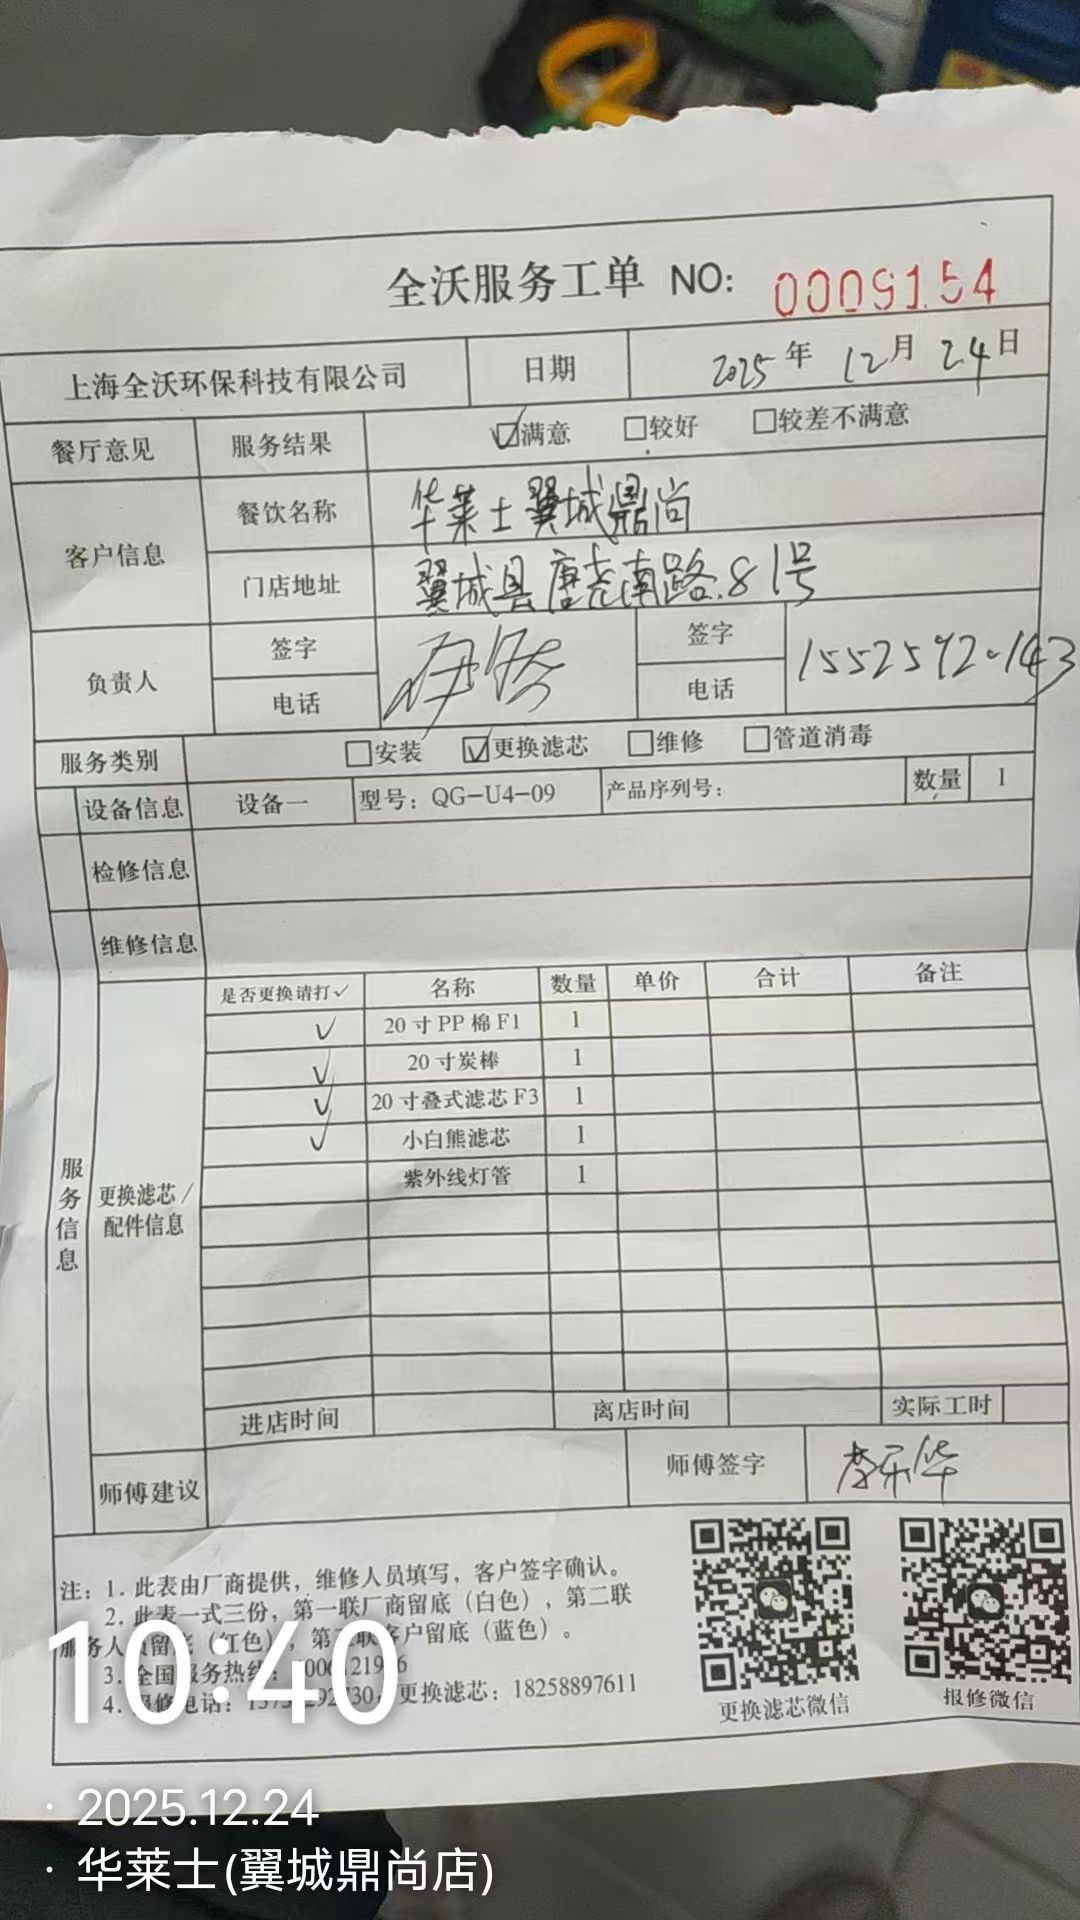 全沃服务工单 NO: 0009154
上海全沃环保科技有限公司 日期 2025年 12月 24日
餐厅意见 服务结果 ☑满意 □较好 □较差不满意
客户信息 餐饮名称 华莱士翼城鼎尚
门店地址 翼城县唐尧南路81号
负责人 签字 签字
电话 电话
服务类别 □安装 ☑更换滤芯 □维修 □管道消毒
设备信息 设备一 型号：QG-U4-09 产品序列号： 数量 1
检修信息
维修信息
服务信息
更换滤芯/
配件信息
是否更换请打✓ 名称 数量 单价 合计 备注
✓ 20寸PP棉F1 1
✓ 20寸炭棒 1
✓ 20寸叠式滤芯F3 1
✓ 小白熊滤芯 1
紫外线灯管 1
进店时间 离店时间 实际工时
师傅建议 师傅签字
注：1. 此表由厂商提供，维修人员填写，客户签字确认。
2. 此表一式三份，第一联厂商留底（白色），第二联
服务人员留底（红色），第三联客户留底（蓝色）。
3. 全国服务热线：
4. 报修电话： 更换滤芯：18258897611
更换滤芯微信 报修微信
10:40
· 2025.12.24
· 华莱士(翼城鼎尚店)